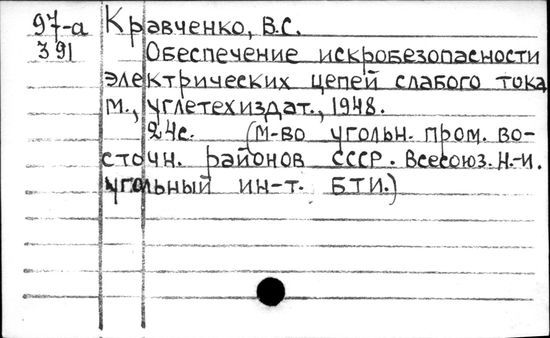 97-а Кравченко, В.С.
391 Обеспечение искробезопасности
электрических цепей слабого тока
М., Углетехиздат., 1948.
24с. (М-во угольн. пром. во-
сточн. районов СССР. Всесоюз. Н.-и.
угольный ин-т. БТИ.)